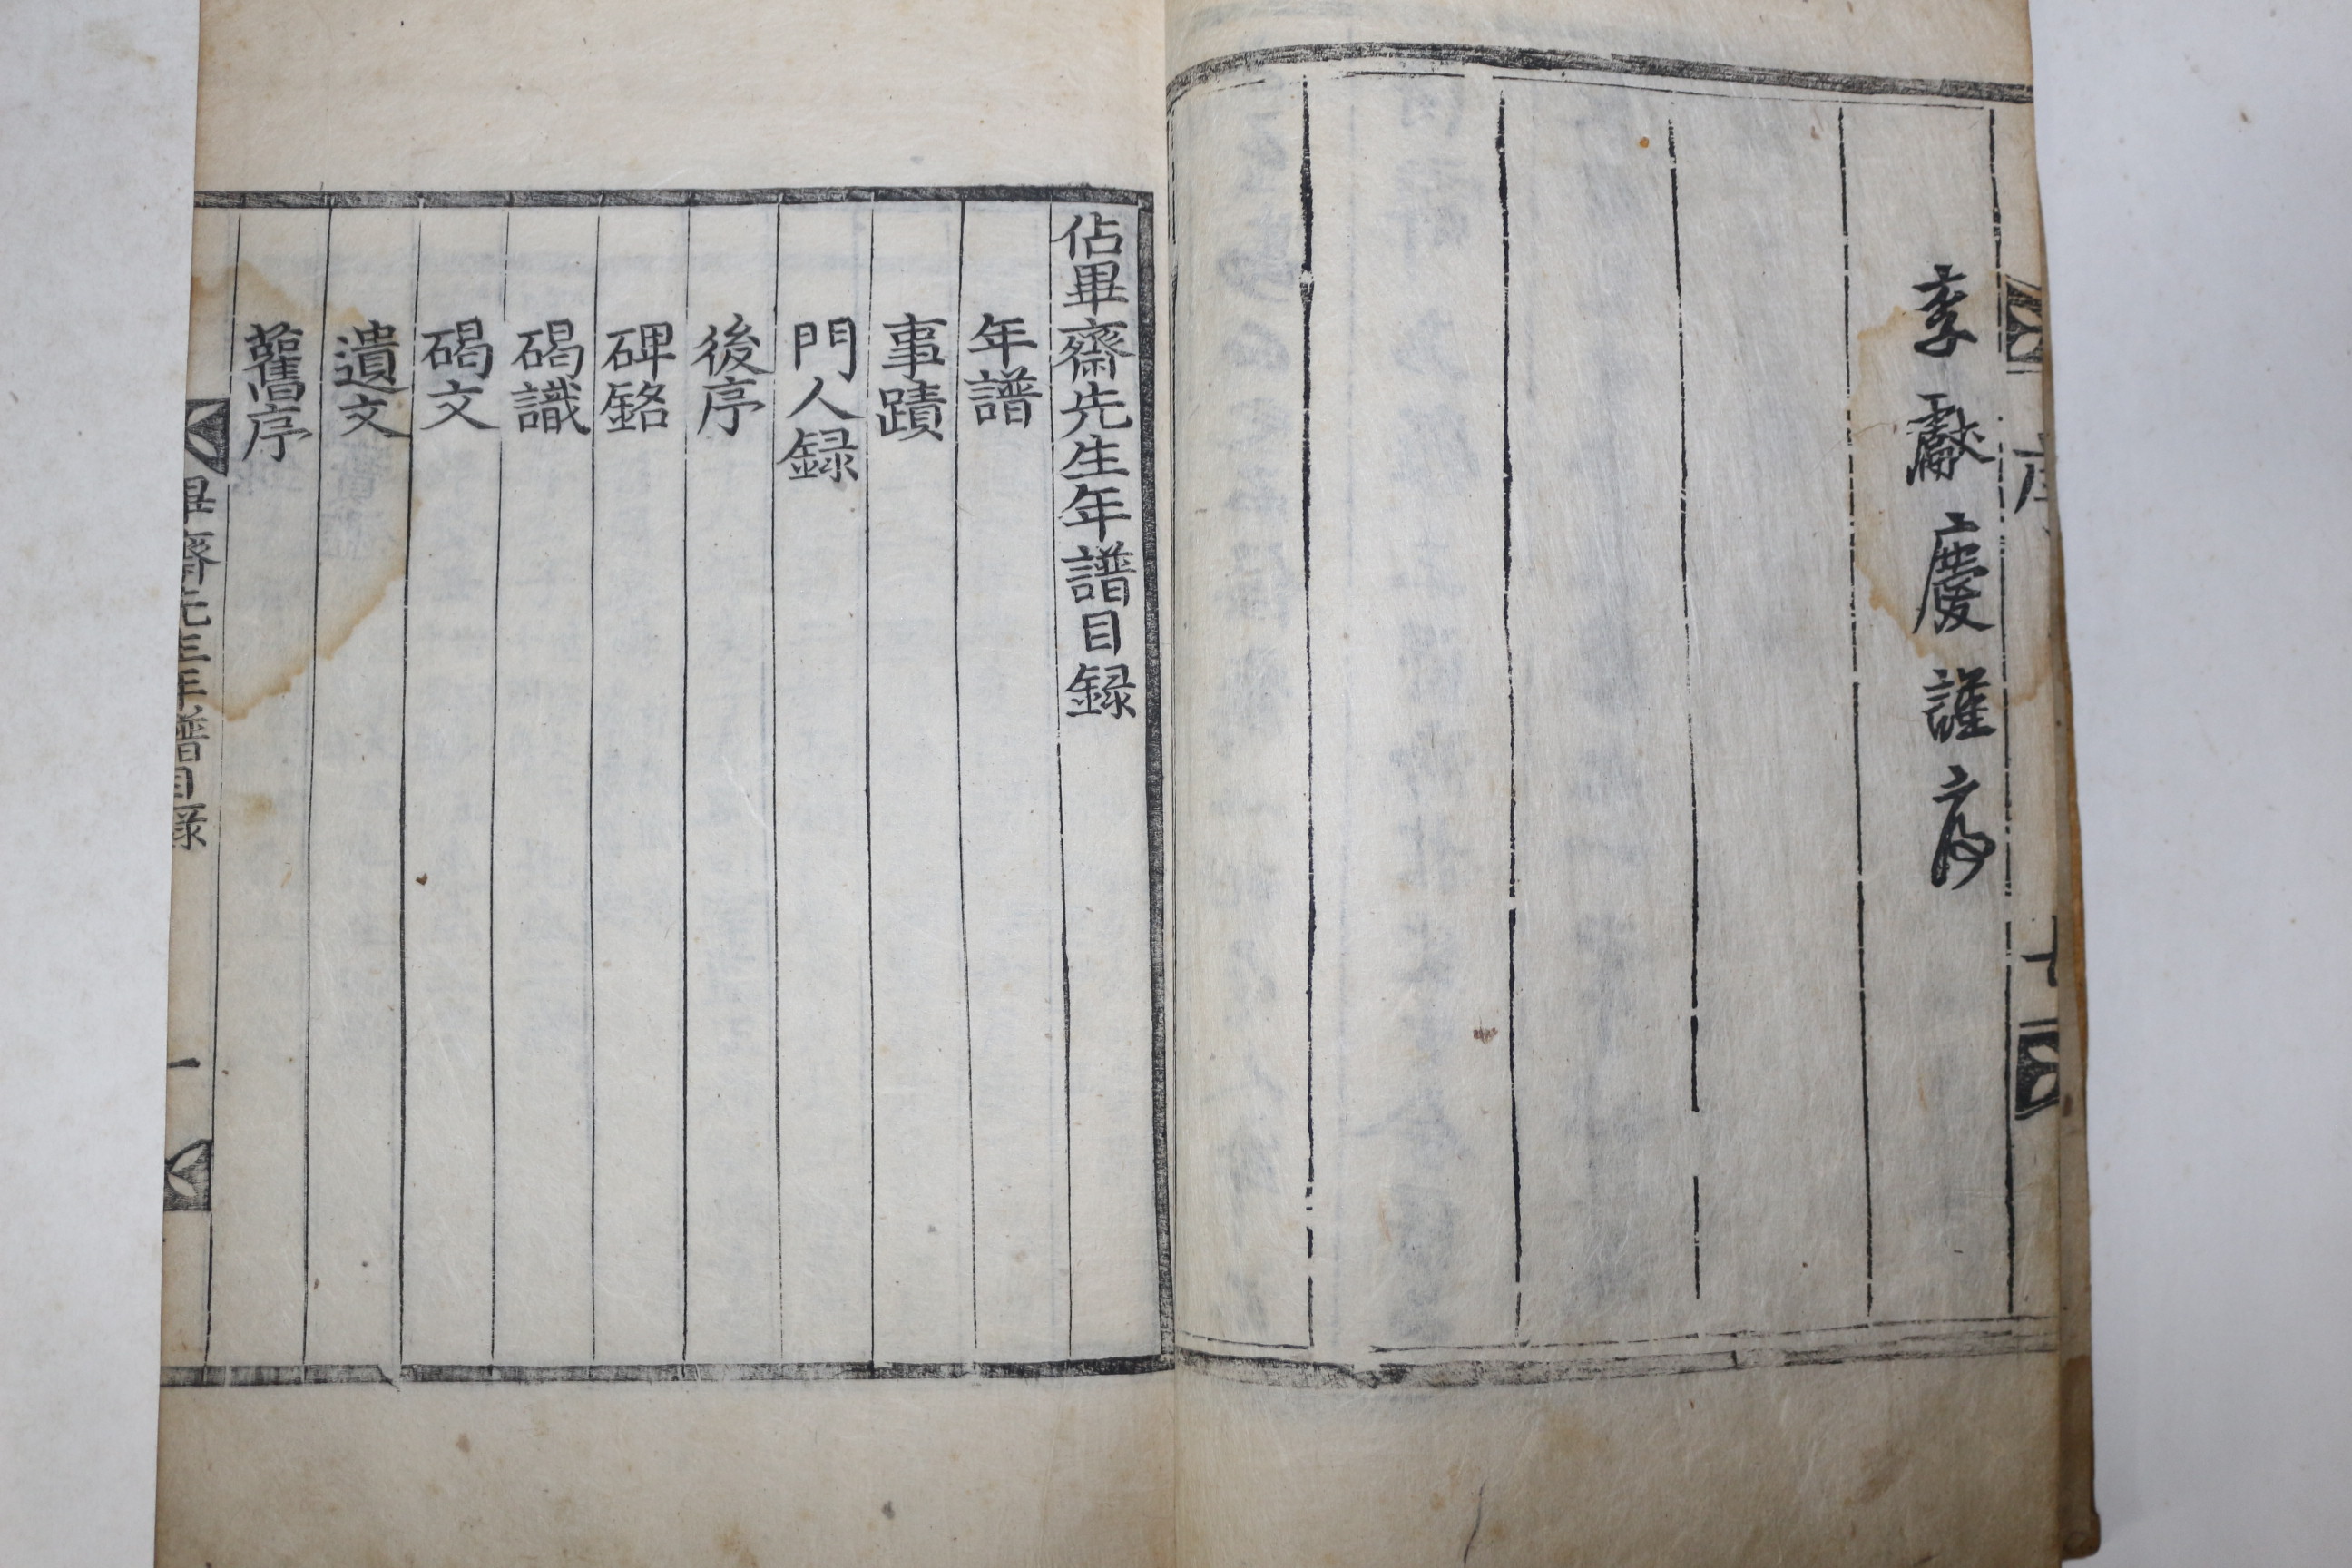 李獻慶謹序
序
十
佔畢齋先生年譜目録
年譜
事蹟
門人録
後序
碑銘
碣識
碣文
遺文
舊序
畢齋先生年譜目録
一